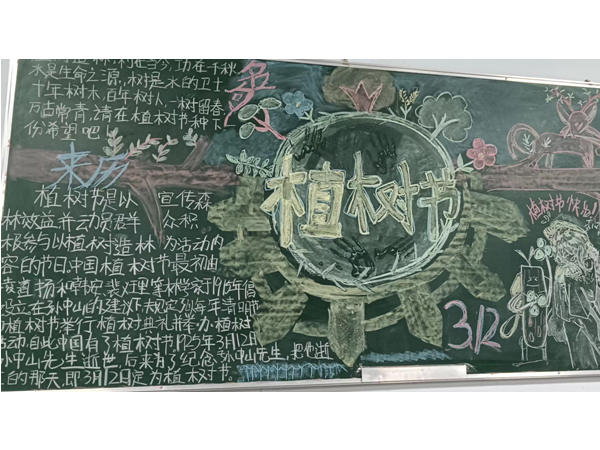 植树造林,利在当今,功在千秋
水是生命之源,树是水的卫士
十年树木,百年树人,一树留春
万古常青,请在植树节种下
份希望吧!
爱
来历
植树节是以 宣传森
林效益并动员群 众积
极参与以植树造林 为活动内
容的节日.中国植树节最初由
凌道扬和韩安、裴义理等林学家于1915年倡
议设立在孙中山的建议下规定以每年清明节
为植树节举行植树典礼并举办植树
活动自此中国有了植树节1925年3月12日
孙中山先生逝世后来为了纪念孙中山先生,把他逝
的那天即3月12日定为植树节.
植树节
植树节快乐!
3.12